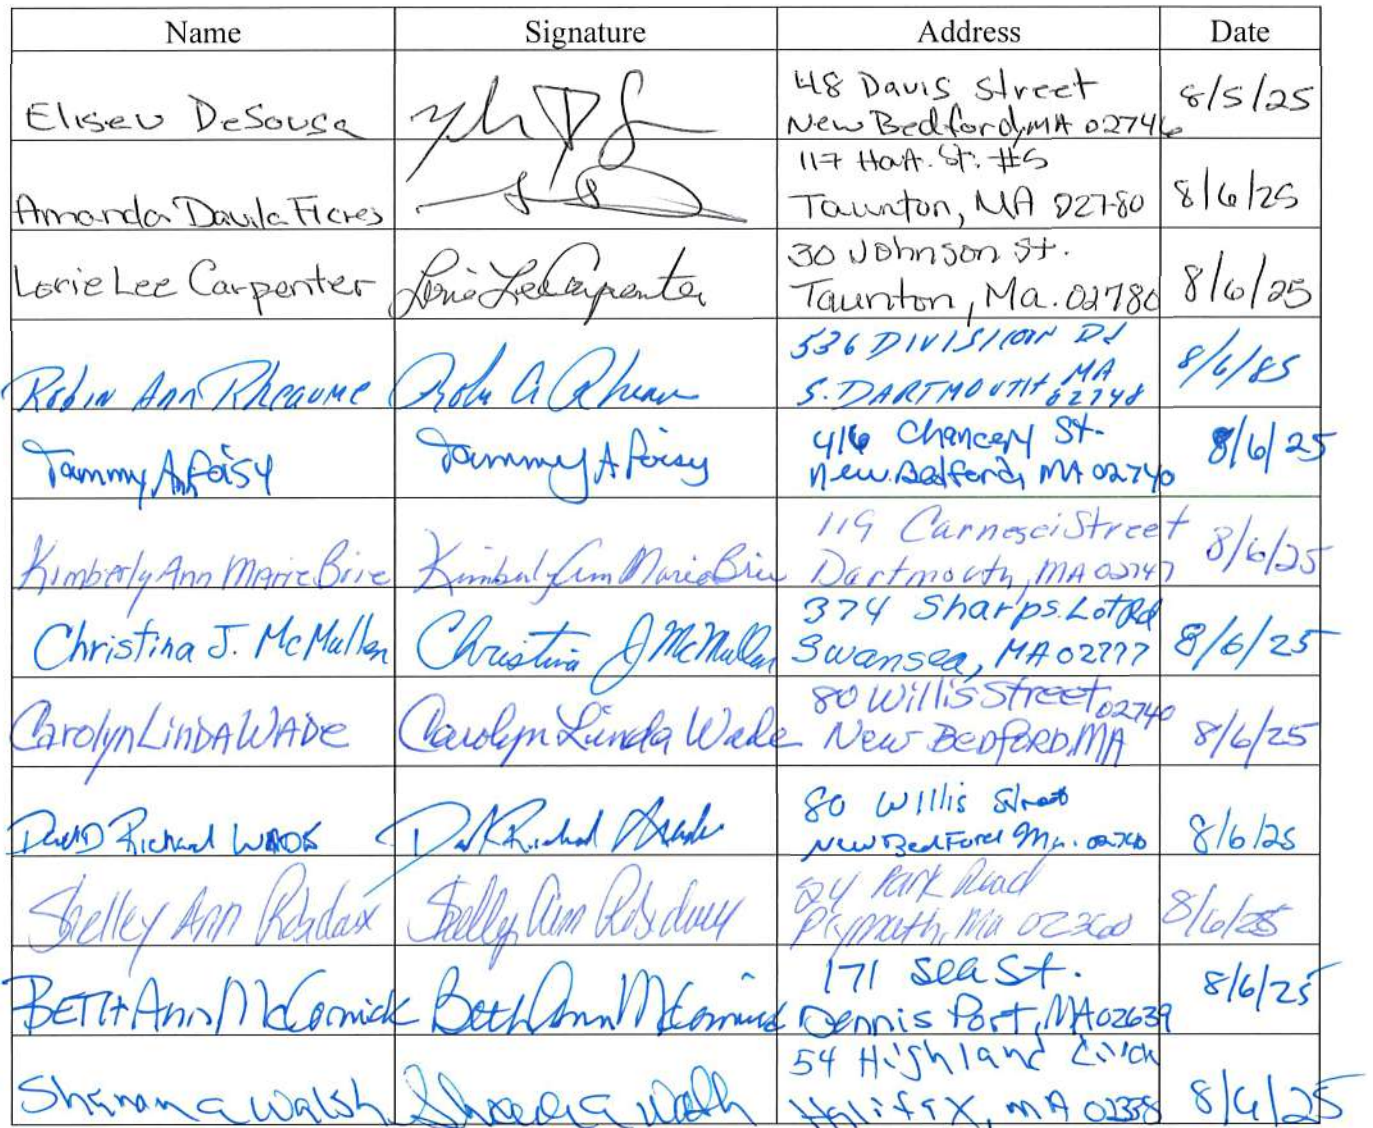 Name Signature Address Date
Eliseu DeSousa 48 Davis Street
New Bedford, MA 02746 8/5/25
Amanda Davila Flores 117 Hart. St. #5
Taunton, MA 02780 8/6/25
Lorie Lee Carpenter Lorie Lee Carpenter 30 Johnson St.
Taunton, Ma. 02780 8/6/25
Robin Ann Rheaume 536 DIVISION Rd
S. DARTMOUTH MA 02748 8/6/85
Tammy Ann Poisy Tammy A Poisy 416 Chancery St.
New Bedford, MA 02740 8/6/25
Kimberly Ann Marie Brie Kimberly Ann Marie Brie 119 Carnegei Street
Dartmouth, MA 02747 8/6/25
Christina J. McMullen Christina J McMullen 374 Sharps Lot Rd
Swansea, MA 02777 8/6/25
Carolyn LINDA WADE Carolyn Linda Wade 80 Willis Street 02740
New BEDFORD MA 8/6/25
David Richard 80 Willis Street
New BedFord Ma. 02740 8/6/25
Shelley Ann Shelley Ann 24 Park Road
Plymouth, Ma 02360 8/6/25
BETH Ann McCormick Beth Ann McCormick 171 Sea St.
Dennis Port, MA 02639 8/6/25
Shanna Walsh 54 Highland Circle
Halifax, MA 02338 8/6/25